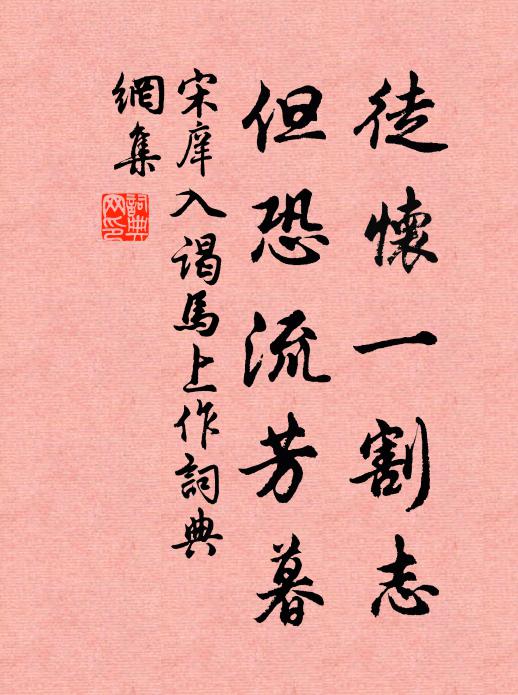 徒懷一割志
但恐流芳暮
宋庠入謁馬上作詞典
網集
詞典
网印